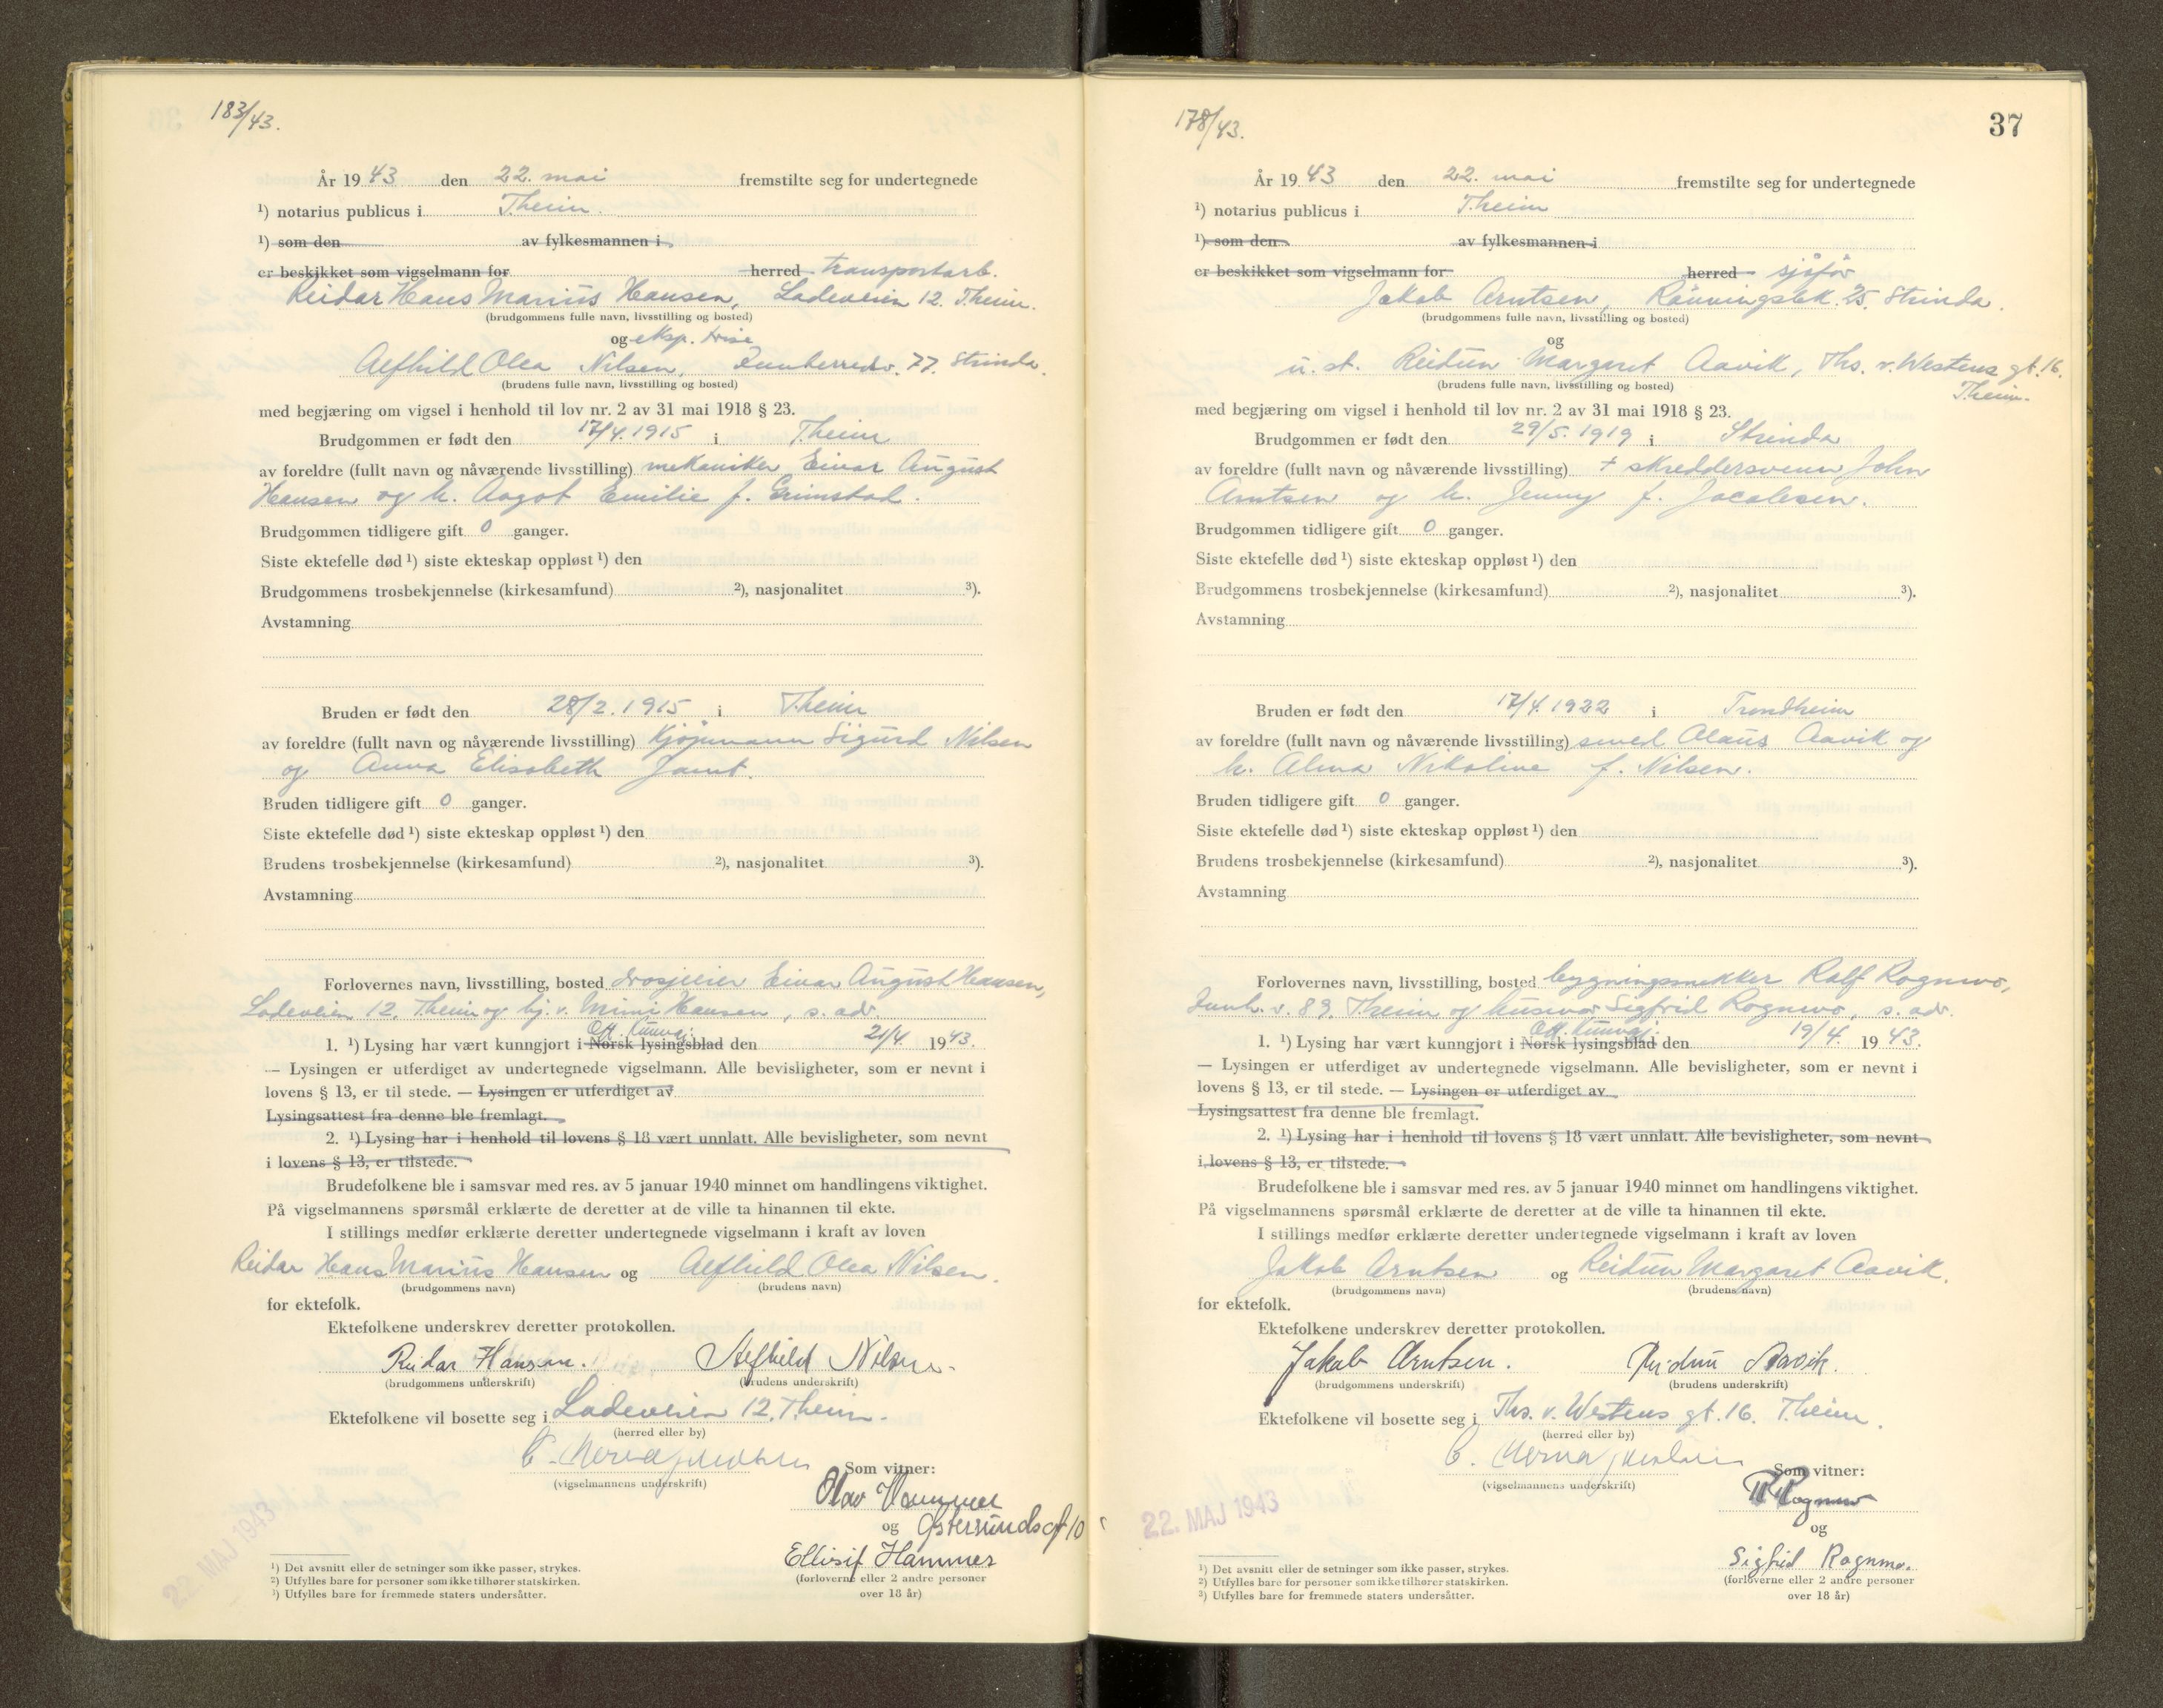 183/43.
År 1943 den 22. mai fremstilte seg for undertegnede
¹) notarius publicus i T.heim.
¹) som den av fylkesmannen i
er beskikket som vigselmann for herred transportarb.
Reidar Hans Marius Hansen, Ladeveien 12. T.heim.
(brudgommens fulle navn, livsstilling og bosted)
og eksp. trise
Alfhild Olea Nilsen, Innherredsv. 77. Strinda.
(brudens fulle navn, livsstilling og bosted)
med begjæring om vigsel i henhold til lov nr. 2 av 31 mai 1918 § 23.
Brudgommen er født den 17/4. 1915 i T.heim
av foreldre (fullt navn og nåværende livsstilling) mekaniker Einar August
Hansen og h. Aagot Emilie f. Grimstad.
Brudgommen tidligere gift 0 ganger.
Siste ektefelle død ¹) siste ekteskap oppløst ¹) den
Brudgommens trosbekjennelse (kirkesamfund) ²), nasjonalitet ³).
Avstamning
Bruden er født den 28/2. 1915 i T.heim
av foreldre (fullt navn og nåværende livsstilling) Kjøpmann Sigurd Nilsen
og Anna Elisabeth Jamt.
Bruden tidligere gift 0 ganger.
Siste ektefelle død ¹) siste ekteskap oppløst ¹) den
Brudens trosbekjennelse (kirkesamfund) ²), nasjonalitet ³).
Avstamning
Forlovernes navn, livsstilling, bosted drosjeeier Einar August Hansen,
Ladeveien 12. T.heim og hj. v. Mimi Hansen, s. adr.
Off. Kunngj.
1. ¹) Lysing har vært kunngjort i Norsk lysingsblad den 21/4. 1943.
— Lysingen er utferdiget av undertegnede vigselmann. Alle bevisligheter, som er nevnt i
lovens § 13, er til stede. — Lysingen er utferdiget av
Lysingsattest fra denne ble fremlagt.
2. ¹) Lysing har i henhold til lovens § 18 vært unnlatt. Alle bevisligheter, som nevnt
i lovens § 13, er tilstede.
Brudefolkene ble i samsvar med res. av 5 januar 1940 minnet om handlingens viktighet.
På vigselmannens spørsmål erklærte de deretter at de ville ta hinannen til ekte.
I stillings medfør erklærte deretter undertegnede vigselmann i kraft av loven
Reidar Hans Marius Hansen og Alfhild Olea Nilsen.
(brudgommens navn) (brudens navn)
for ektefolk.
Ektefolkene underskrev deretter protokollen.
Reidar Hansen. Alfhild Nilsen.
(brudgommens underskrift) (brudens underskrift)
Ektefolkene vil bosette seg i Ladeveien 12. T.heim.
(herred eller by)
Som vitner:
(vigselmannens underskrift)
Olav Hammer
og Østersundsgt 10
Ellisif Hammer
(forloverne eller 2 andre personer
over 18 år)
22. MAJ 1943
¹) Det avsnitt eller de setninger som ikke passer, strykes.
²) Utfylles bare for personer som ikke tilhører statskirken.
³) Utfylles bare for fremmede staters undersåtter.
37
178/43.
År 1943 den 22. mai fremstilte seg for undertegnede
¹) notarius publicus i T.heim
¹) som den av fylkesmannen i
er beskikket som vigselmann for herred sjåfør
Jakob Arntsen, Rønningsbk. 25. Strinda.
(brudgommens fulle navn, livsstilling og bosted)
og
u. st. Reidun Margaret Aavik, Ths. v. Westens gt. 16.
T.heim.
(brudens fulle navn, livsstilling og bosted)
med begjæring om vigsel i henhold til lov nr. 2 av 31 mai 1918 § 23.
Brudgommen er født den 29/5. 1919 i Strinda
av foreldre (fullt navn og nåværende livsstilling) + skreddersvenn John
Arntsen og h. Jenny f. Jacobsen.
Brudgommen tidligere gift 0 ganger.
Siste ektefelle død ¹) siste ekteskap oppløst ¹) den
Brudgommens trosbekjennelse (kirkesamfund) ²), nasjonalitet ³).
Avstamning
Bruden er født den 17/4. 1922 i Trondheim
av foreldre (fullt navn og nåværende livsstilling) smed Olaus Aavik og
h. Alma Nikoline f. Nilsen.
Bruden tidligere gift 0 ganger.
Siste ektefelle død ¹) siste ekteskap oppløst ¹) den
Brudens trosbekjennelse (kirkesamfund) ²), nasjonalitet ³).
Avstamning
Forlovernes navn, livsstilling, bosted bygningssnekker Ralf Rognmo,
Innh. v. 89. T.heim og husmor Sigfrid Rognmo, s. adr.
Off. Kunngj.
1. ¹) Lysing har vært kunngjort i Norsk lysingsblad den 19/4. 1943.
— Lysingen er utferdiget av undertegnede vigselmann. Alle bevisligheter, som er nevnt i
lovens § 13, er til stede. — Lysingen er utferdiget av
Lysingsattest fra denne ble fremlagt.
2. ¹) Lysing har i henhold til lovens § 18 vært unnlatt. Alle bevisligheter, som nevnt
i lovens § 13, er tilstede.
Brudefolkene ble i samsvar med res. av 5 januar 1940 minnet om handlingens viktighet.
På vigselmannens spørsmål erklærte de deretter at de ville ta hinannen til ekte.
I stillings medfør erklærte deretter undertegnede vigselmann i kraft av loven
Jakob Arntsen og Reidun Margaret Aavik.
(brudgommens navn) (brudens navn)
for ektefolk.
Ektefolkene underskrev deretter protokollen.
Jakob Arntsen. Reidun Aavik.
(brudgommens underskrift) (brudens underskrift)
Ektefolkene vil bosette seg i Ths. v. Westens gt. 16. T.heim.
(herred eller by)
Som vitner:
(vigselmannens underskrift)
R Rognmo
og
Sigfrid Rognmo.
(forloverne eller 2 andre personer
over 18 år)
22. MAJ 1943
¹) Det avsnitt eller de setninger som ikke passer, strykes.
²) Utfylles bare for personer som ikke tilhører statskirken.
³) Utfylles bare for fremmede staters undersåtter.